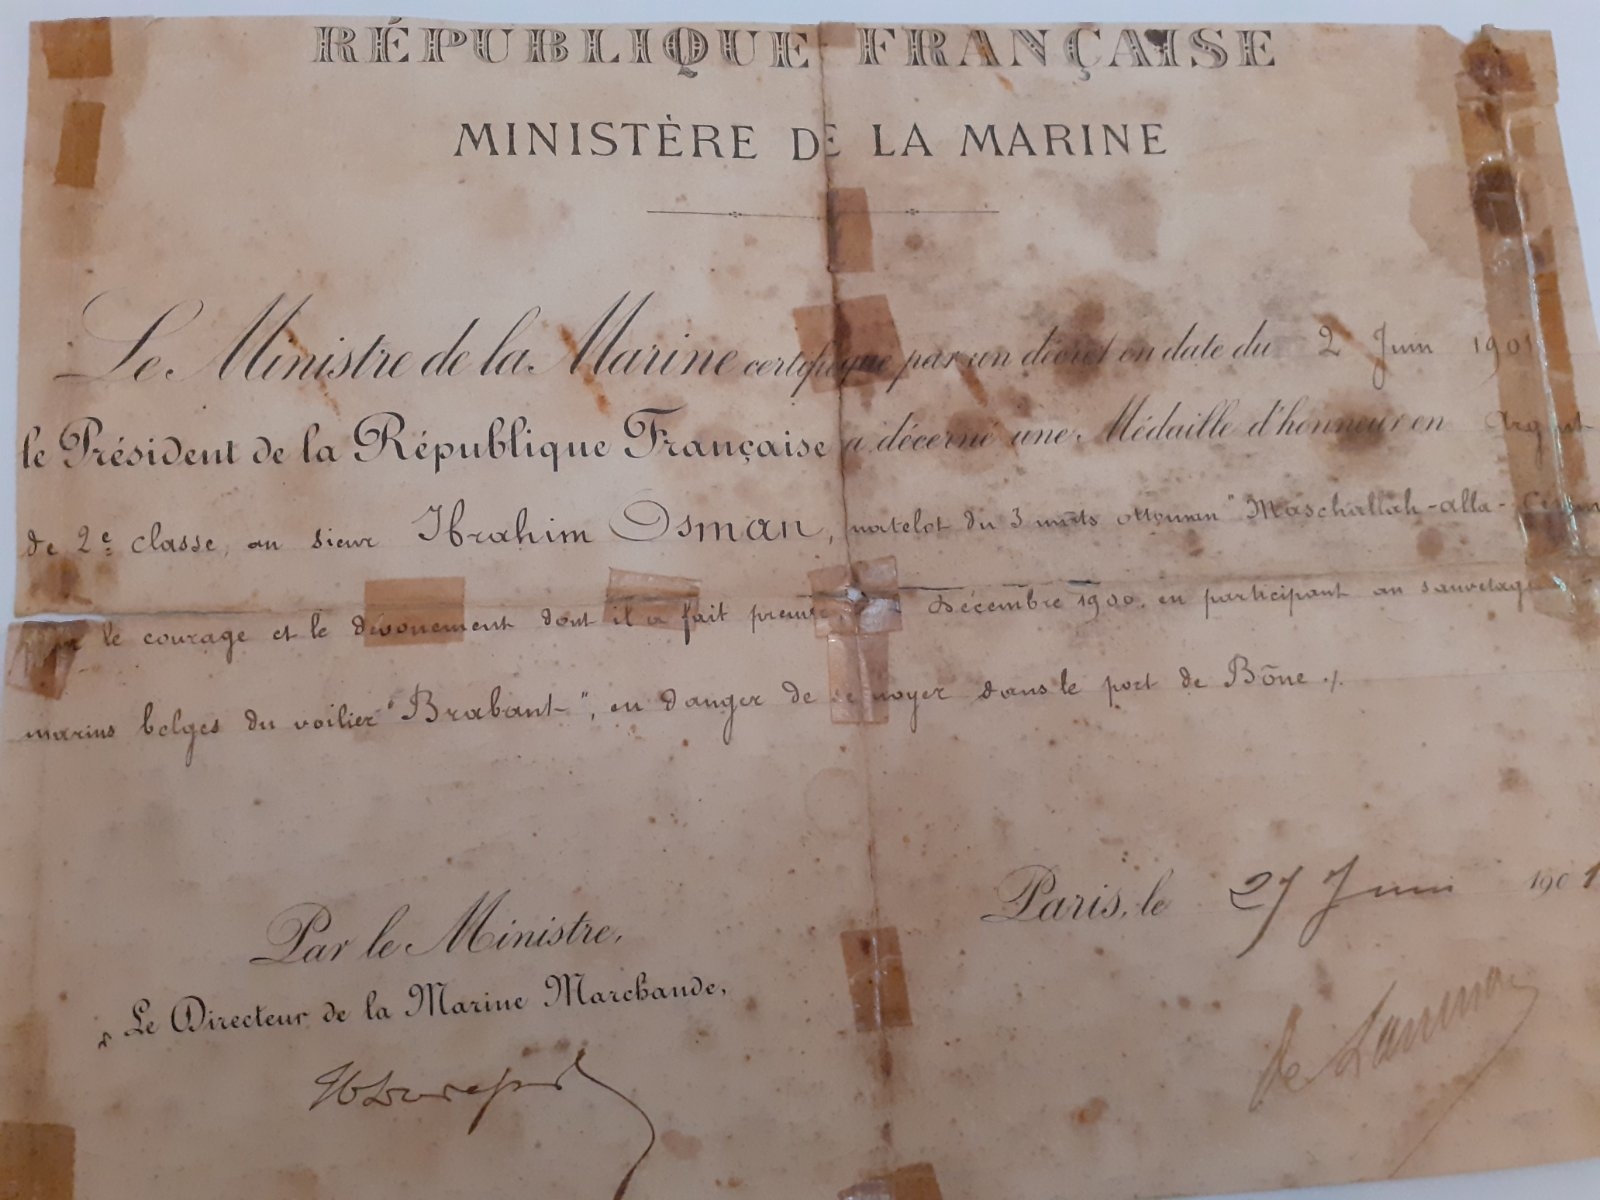 RÉPUBLIQUE FRANÇAISE
MINISTÈRE DE LA MARINE
Le Ministre de la Marine certifie que par un décret en date du 2 Juin 1901
le Président de la République Française a décerné une Médaille d'honneur en Argent
de 2e classe, au sieur Ibrahim Osman, matelot du 3 mâts ottoman "Maschallah-alla-
le courage et le dévouement dont il a fait preuve, Décembre 1900, en participant au sauvetage
marins belges du voilier "Brabant", en danger de se noyer dans le port de Bône ./.
Paris, le 27 Juin 1901
Par le Ministre,
Le Directeur de la Marine Marchande,
de Lanessan